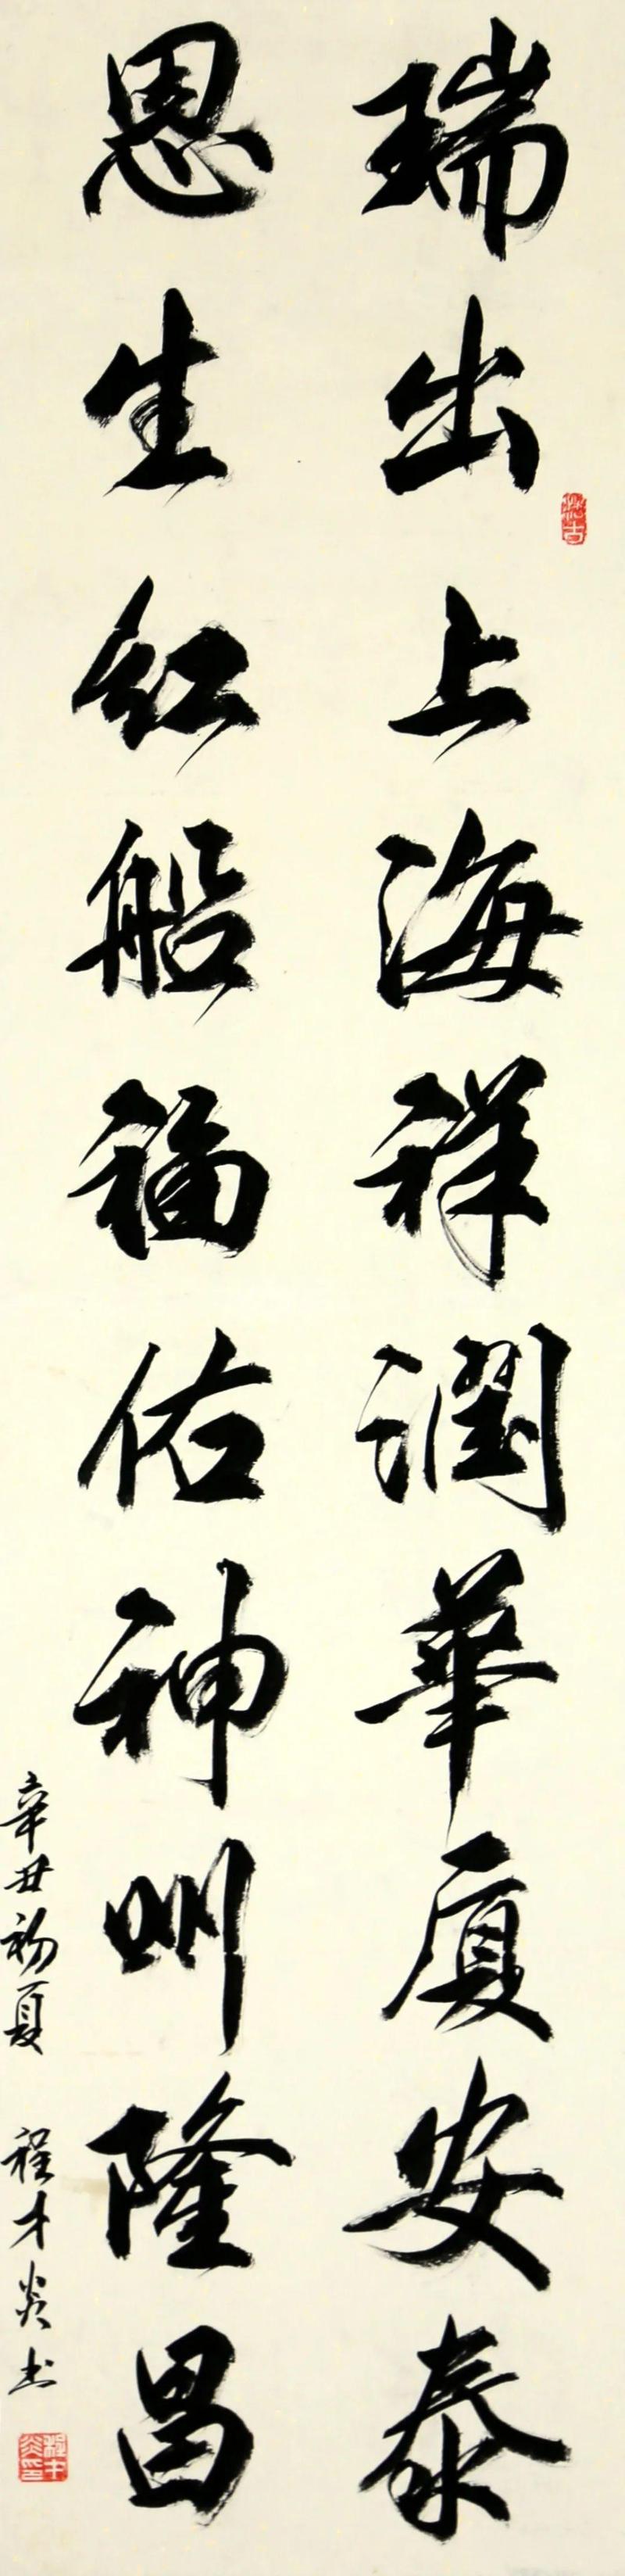 瑞出上海祥潤華厦安泰
恩生红船福佑神州隆昌
辛丑初夏 程才炎书
程才炎印